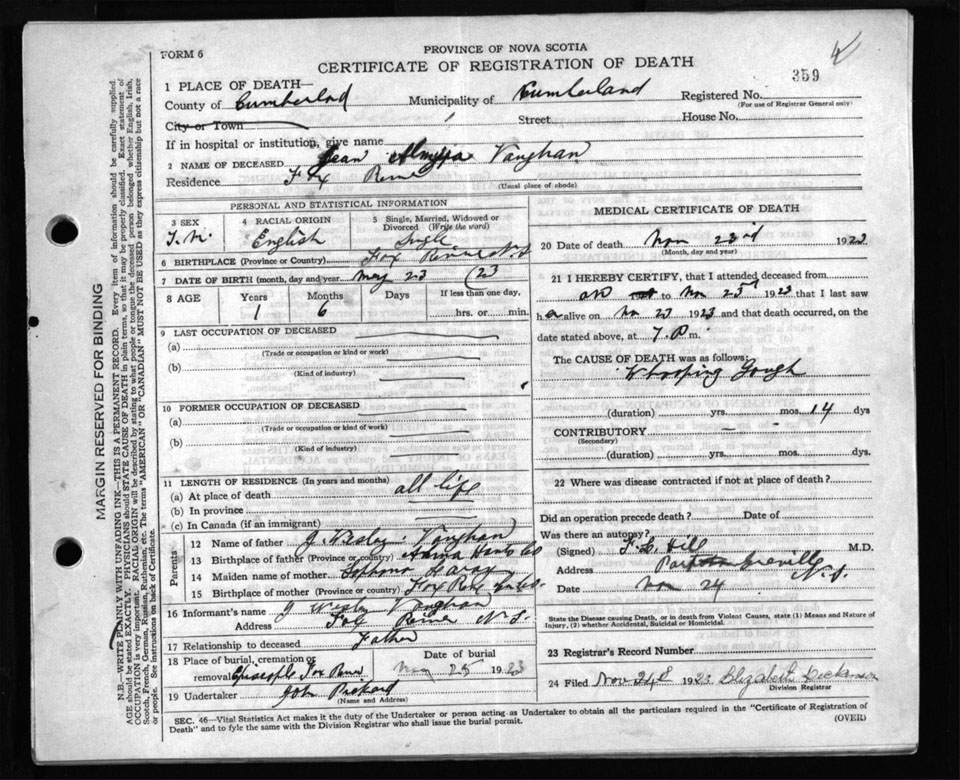 FORM 6
PROVINCE OF NOVA SCOTIA
CERTIFICATE OF REGISTRATION OF DEATH
359
1 PLACE OF DEATH—
County of Cumberland Municipality of Cumberland Registered No.
(For use of Registrar General only)
City or Town Street House No.
If in hospital or institution, give name
2 NAME OF DECEASED Jean Vaughan
Residence Fox River
(Usual place of abode)
PERSONAL AND STATISTICAL INFORMATION
3 SEX
4 RACIAL ORIGIN English
5 Single, Married, Widowed or Divorced (Write the word) Single
6 BIRTHPLACE (Province or Country) Fox River N.S
7 DATE OF BIRTH (month, day and year) May 23 (23
8 AGE Years Months Days If less than one day,
1 6 hrs. or min.
9 LAST OCCUPATION OF DECEASED
(a)
(Trade or occupation or kind or work)
(b)
(Kind of industry)
10 FORMER OCCUPATION OF DECEASED
(a)
(Trade or occupation or kind of work)
(b)
(Kind of industry)
11 LENGTH OF RESIDENCE (In years and months)
(a) At place of death all life
(b) In province
(c) In Canada (if an immigrant)
Parents
12 Name of father J Wesley Vaughan
13 Birthplace of father (Province or country) Hants Co
14 Maiden name of mother
15 Birthplace of mother (Province or country) Fox River
16 Informant's name J Wesley Vaughan
Address Fox River N.S.
17 Relationship to deceased Father
18 Place of burial, cremation or removal Fox River
Date of burial Nov 25 1923
19 Undertaker John
(Name and Address)
MEDICAL CERTIFICATE OF DEATH
20 Date of death Nov 23rd 1923
(Month, day and year)
21 I HEREBY CERTIFY, that I attended deceased from
to Nov 23rd 1923 that I last saw
h er alive on Nov 23 1923 and that death occurred, on the
date stated above, at 7. P. m.
The CAUSE OF DEATH was as follows:
Whooping Cough
(duration) yrs. mos. 14 dys
CONTRIBUTORY
(Secondary)
(duration) yrs. mos. dys.
22 Where was disease contracted if not at place of death?
Did an operation precede death? Date of
Was there an autopsy?
(Signed) Hill M.D.
Address Port Greville N.S.
Date Nov 24
State the Disease causing Death, or in death from Violent Causes, state (1) Means and Nature of
Injury, (2) whether Accidental, Suicidal or Homicidal.
23 Registrar's Record Number
24 Filed Nov 24th 1923 Elizabeth Dickinson
Division Registrar
SEC. 46—Vital Statistics Act makes it the duty of the Undertaker or person acting as Undertaker to obtain all the particulars required in the "Certificate of Registration of
Death" and to fyle the same with the Division Registrar who shall issue the burial permit.
(OVER)
MARGIN RESERVED FOR BINDING
N.B.—WRITE PLAINLY WITH UNFADING INK—THIS IS A PERMANENT RECORD. Every item of information should be carefully supplied.
AGE should be stated EXACTLY. PHYSICIANS should STATE CAUSE OF DEATH in plain terms, so that it may be properly classified. Exact statement of
OCCUPATION is very important. RACIAL ORIGIN will be described by stating to what people or tongue the deceased person belonged whether English, Irish,
Scotch, French, German, Russian, Ruthenian, etc. The terms "AMERICAN" or "CANADIAN" MUST NOT BE USED as they express citizenship but not a race
or people. See instructions on back of Certificate.